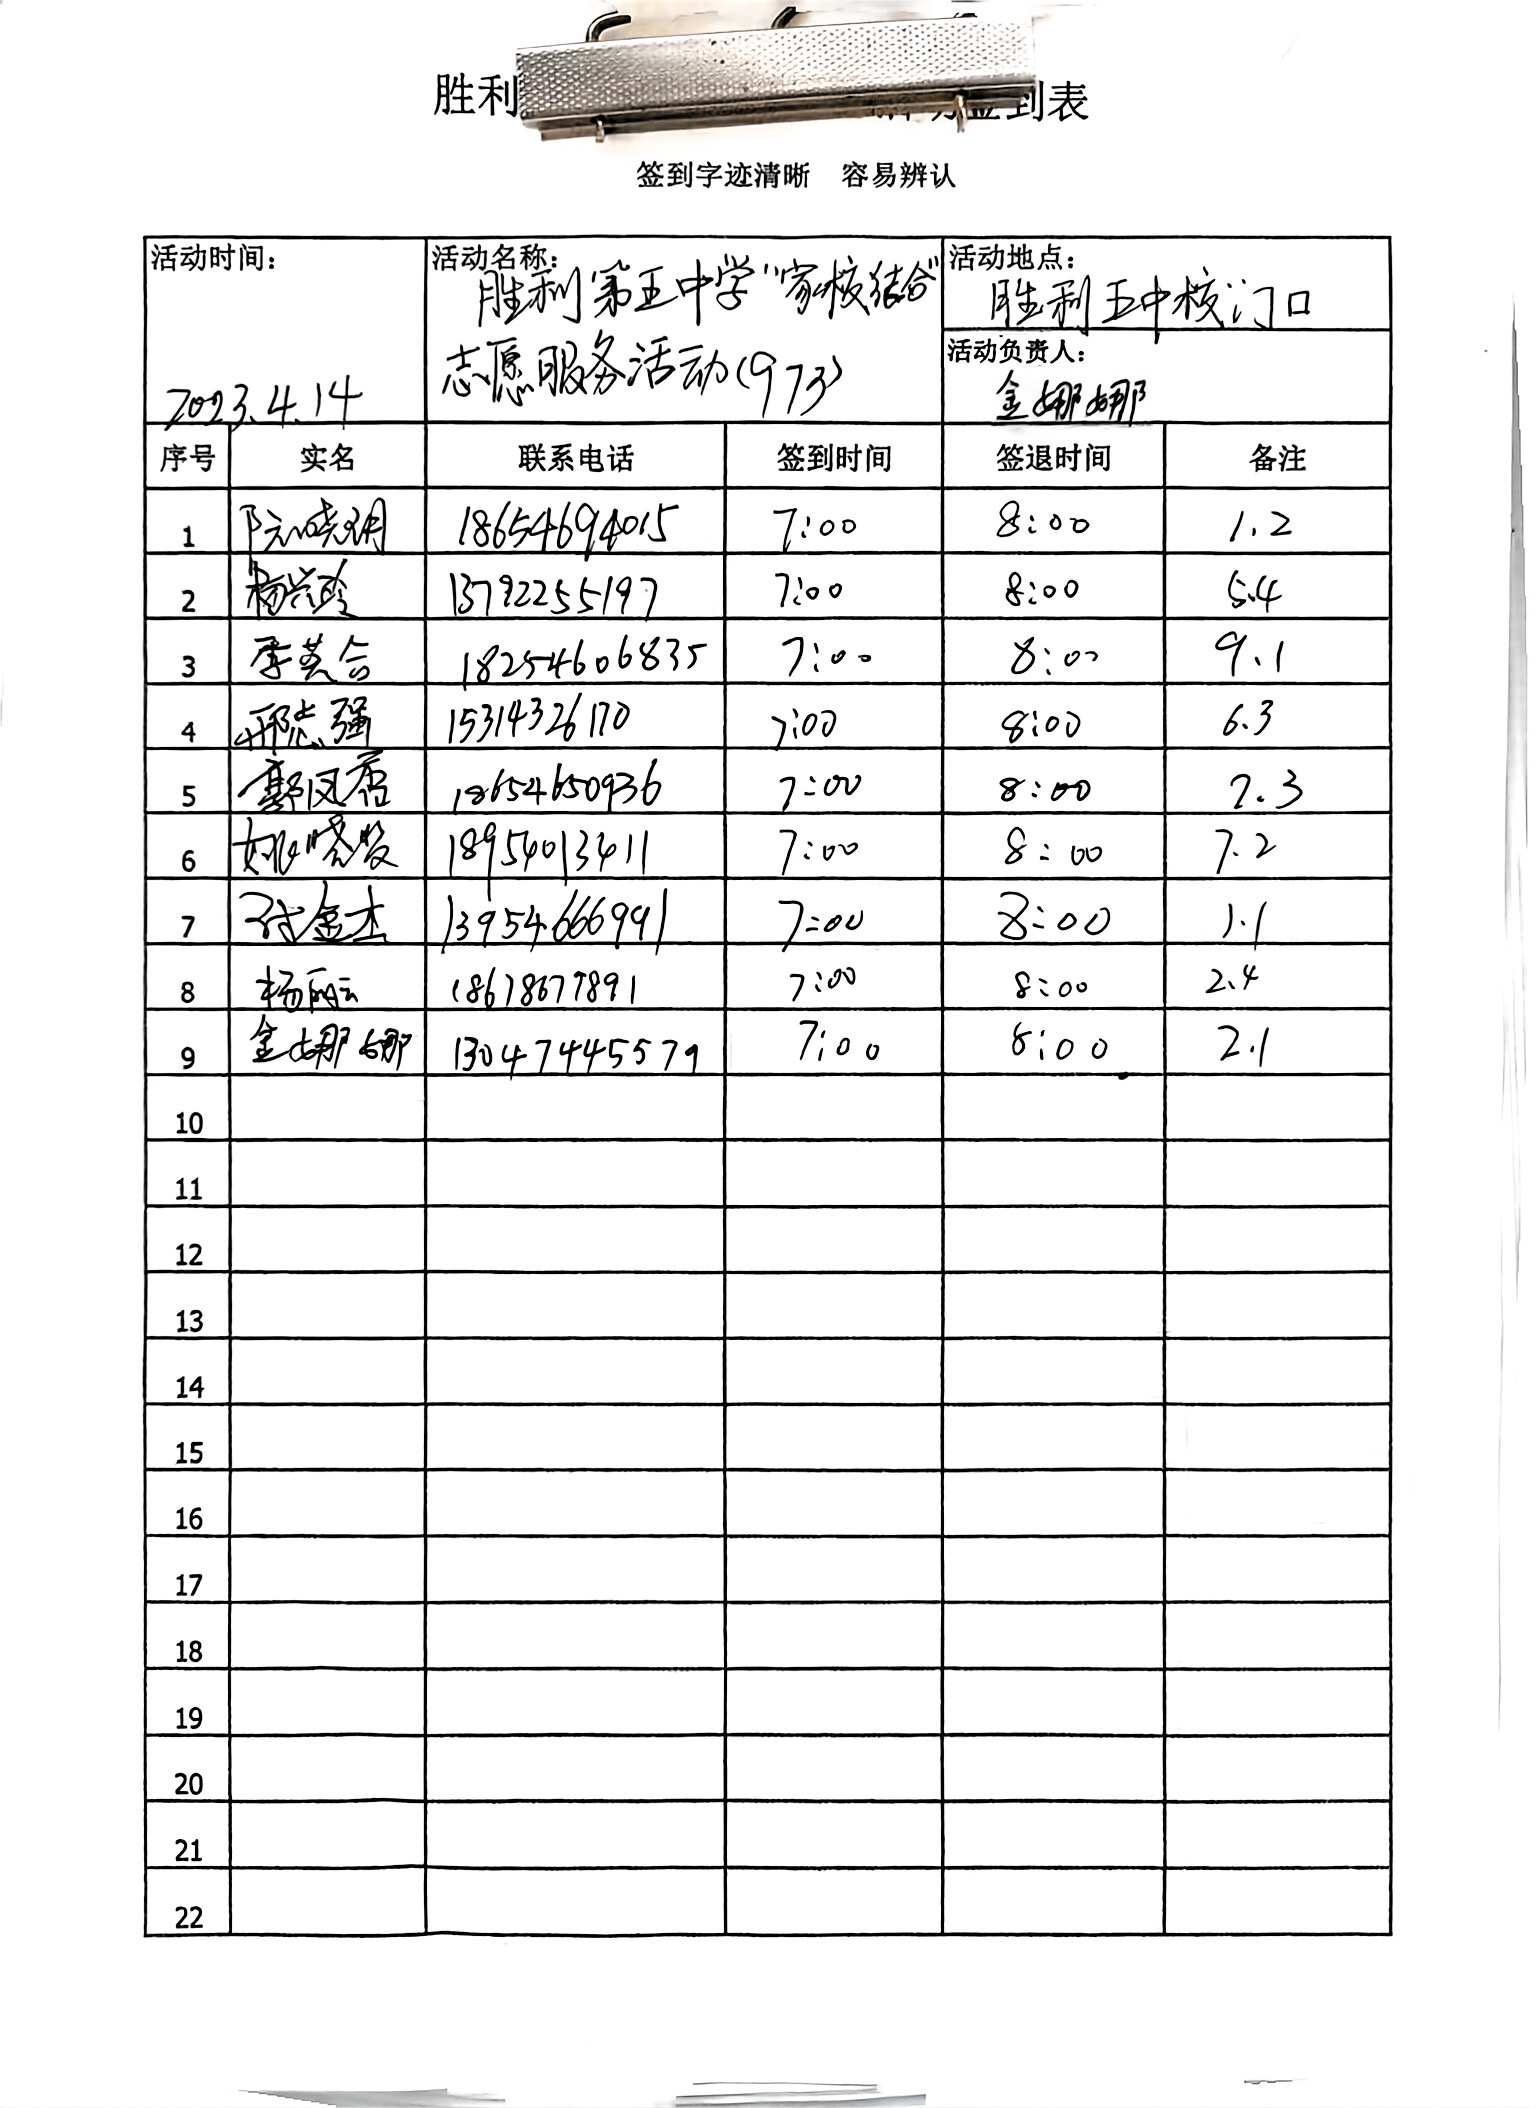 胜利 签到表
签到字迹清晰 容易辨认
活动时间： 活动名称： 活动地点：
胜利第五中学“家校结合” 胜利五中校门口
志愿服务活动(973) 活动负责人：
2023.4.14 金娜娜
序号 实名 联系电话 签到时间 签退时间 备注
1 阮晓娟 18654694015 7:00 8:00 1.2
2 杨兴玲 13792255197 7:00 8:00 5.4
3 李英合 18254606835 7:00 8:00 9.1
4 邢志强 15314326170 7:00 8:00 6.3
5 郭凤君 18654650936 7:00 8:00 7.3
6 姚晓 18954013411 7:00 8:00 7.2
7 金杰 13954666991 7:00 8:00 1.1
8 杨丽云 18678677891 7:00 8:00 2.4
9 金娜娜 13047445579 7:00 8:00 2.1
10
11
12
13
14
15
16
17
18
19
20
21
22